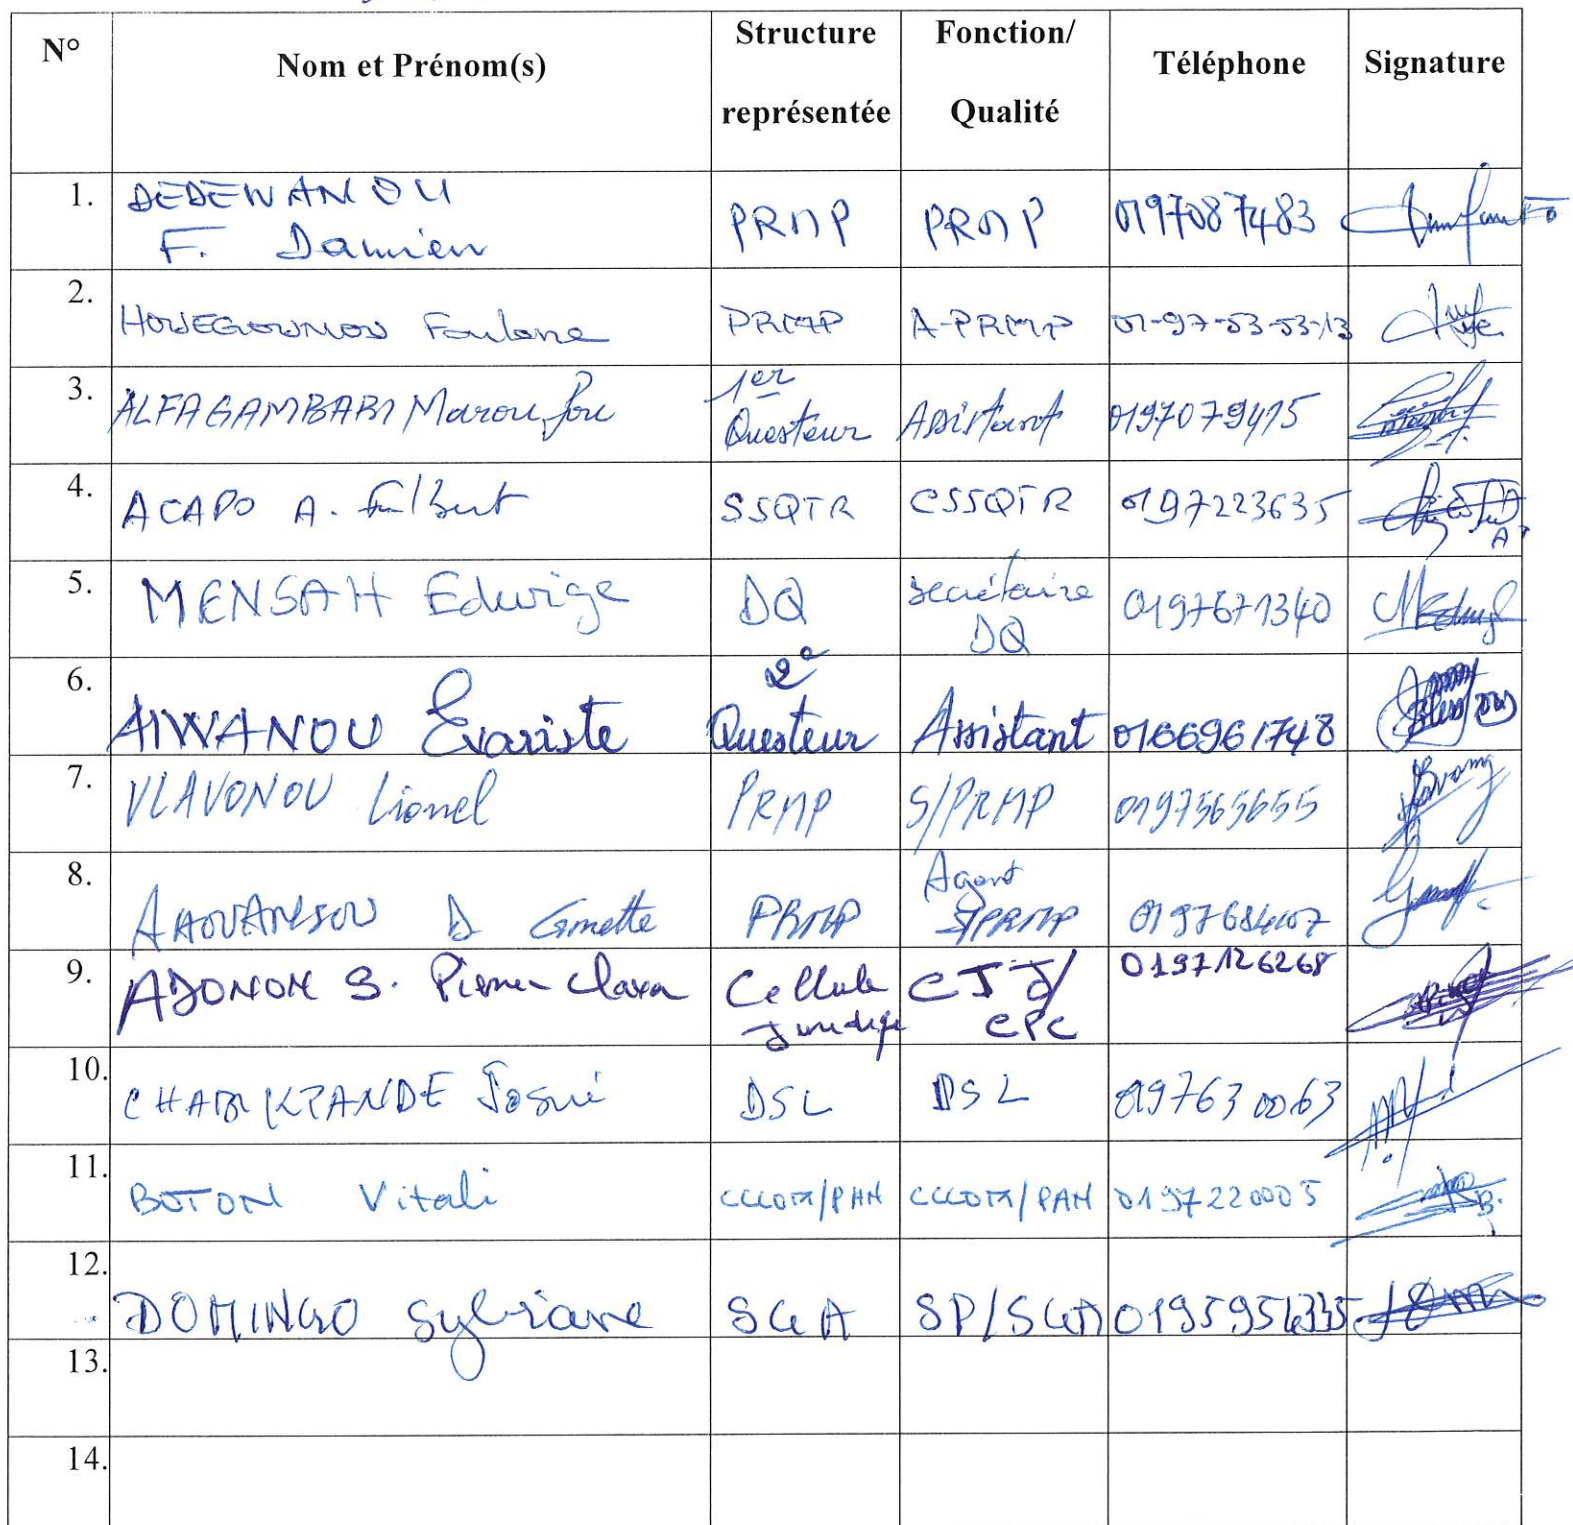 N° Nom et Prénom(s) Structure représentée Fonction/ Qualité Téléphone Signature
1. DEDEWANOU F. Damien PRMP PRMP 0197087483
2. HOUEGOUNOU PRMP A-PRMP 01-97-53-53-13
3. ALFA GAMBARI Maroufou 1er Questeur Assistant 0197079415
4. ACAPO A. Fulbert SSQTR CSSQTR 0197223635
5. MENSAH Edwige DQ Secrétaire DQ 0197671340
6. AIWANOU Évariste 2e Questeur Assistant 0166961748
7. VLAVONOU Lionel PRMP S/PRMP 0197565655
8. AHOUANSOU D Ginette PRMP Agent S/PRMP
9. ADONON S. Pierre Claver Cellule Juridique CJ/ CPC 0197126268
10. CHABI KPANDE Josué DSL DSL 0197630063
11. BOTON Vitali CCCOM/PAN CCCOM/PAN 0197220005
12. DOMINGO Sylviane SGA SP/SGA
13.
14.